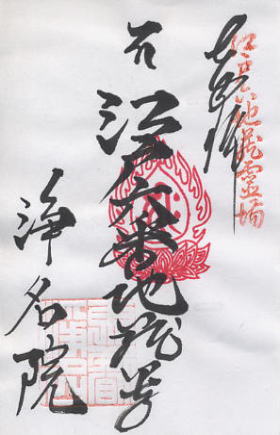 江戸六地蔵霊場
奉拝
江戸六番地蔵尊
浄名院